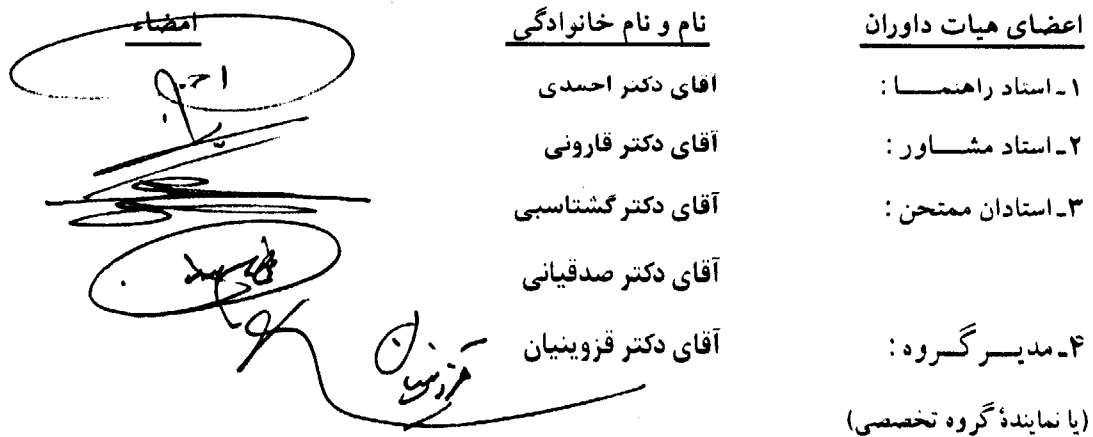 اعضای هیات داوران نام و نام خانوادگی امضاء
۱ـ استاد راهنمـــــا : آقای دکتر احمدی
۲ـ استاد مشـــاور : آقای دکتر قارونی
۳ـ استادان ممتحن : آقای دکتر گشتاسبی
آقای دکتر صدقیانی
۴ـ مدیـــر گـــروه : آقای دکتر قزوینیان
قزوینیان
(یا نمایندهٔ گروه تخصصی)